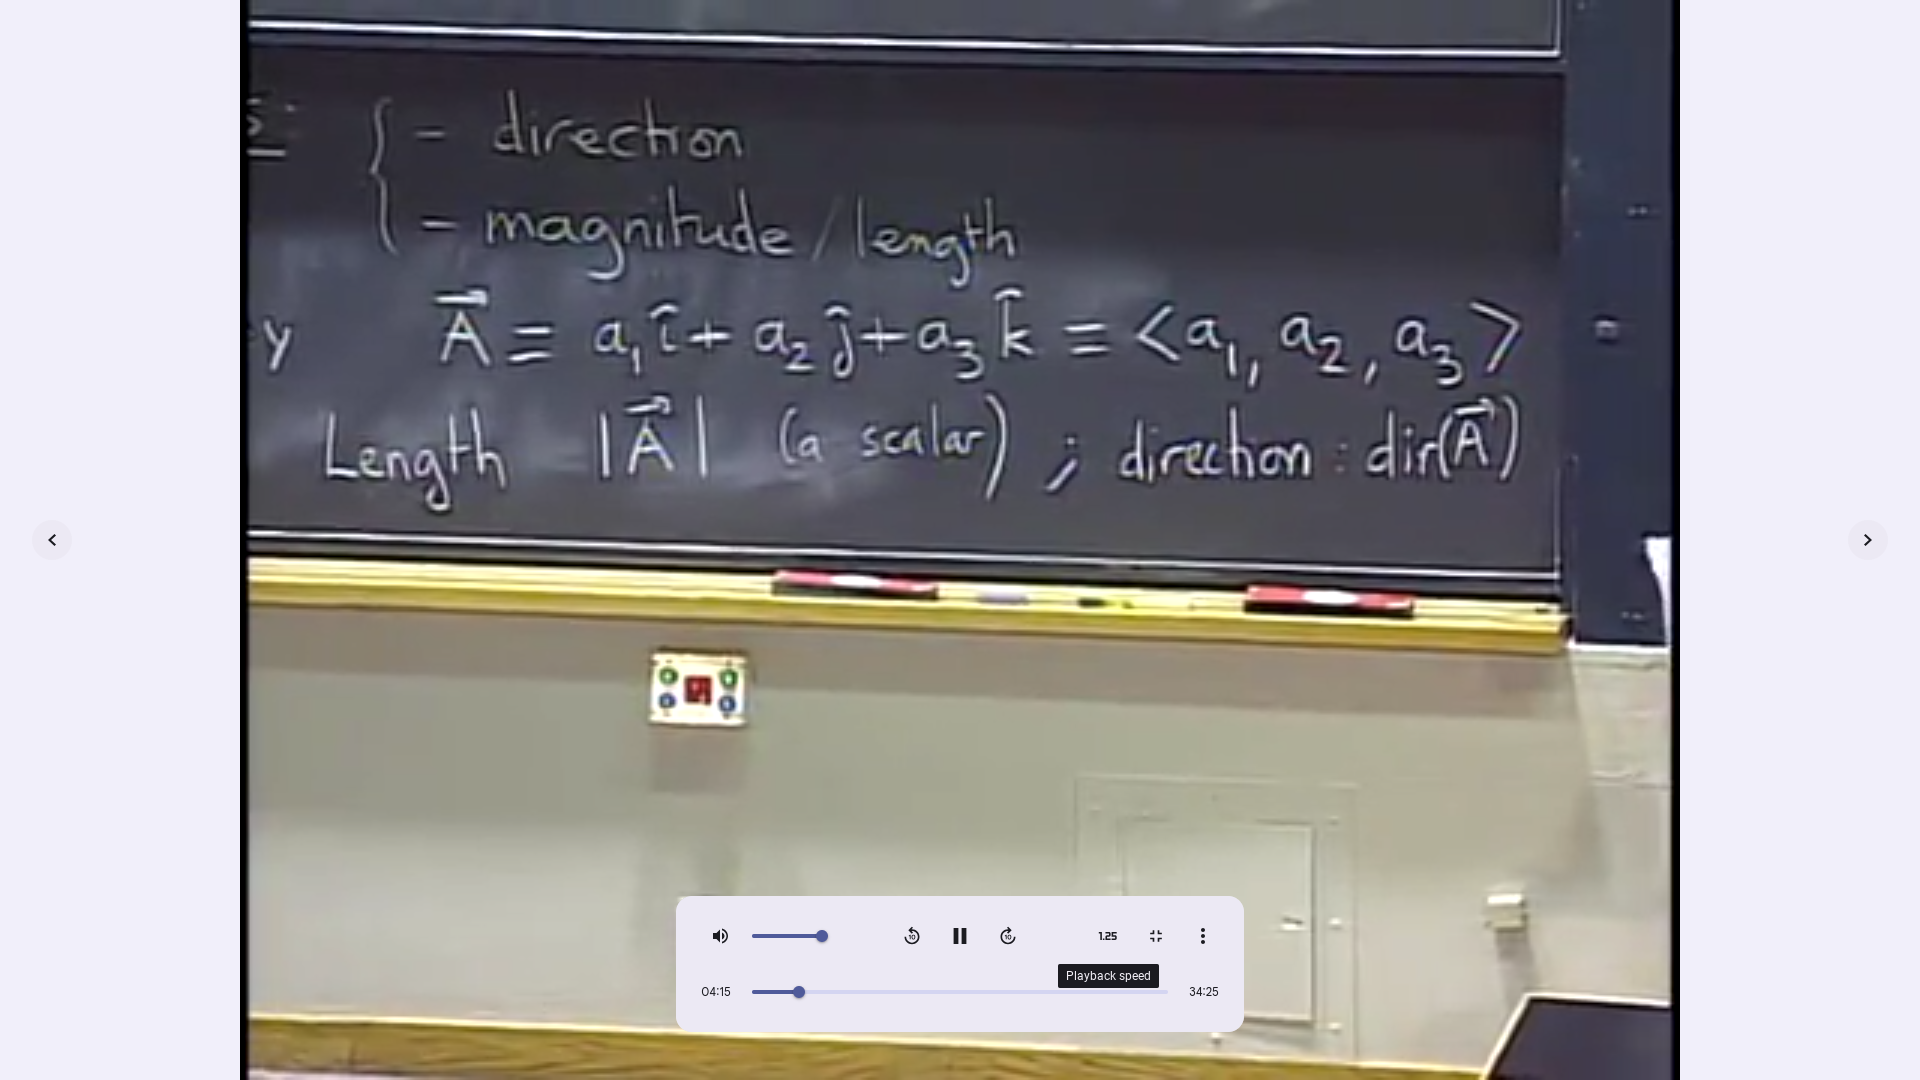 - direction
- magnitude / length
y A⃗ ≡ a₁ î + a₂ ĵ + a₃ k̂ ≡ <a₁, a₂, a₃>
Length |A⃗| (a scalar) ; direction : dir(A⃗)
10 10 1.25
Playback speed
04:15 34:25